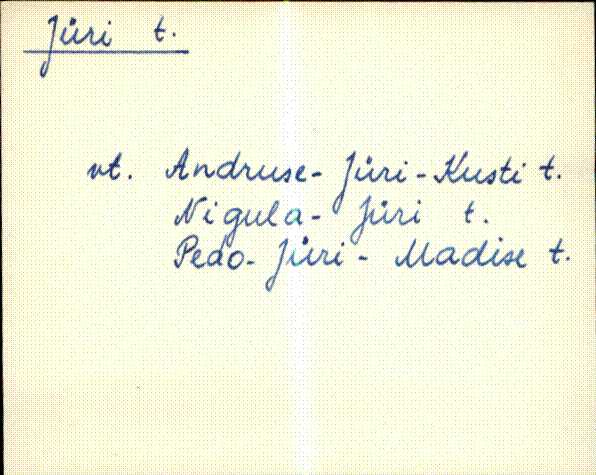 Jüri t.
vt. Andruse-Jüri-Kusti t.
Nigula-Jüri t.
Peao-Jüri-Madise t.